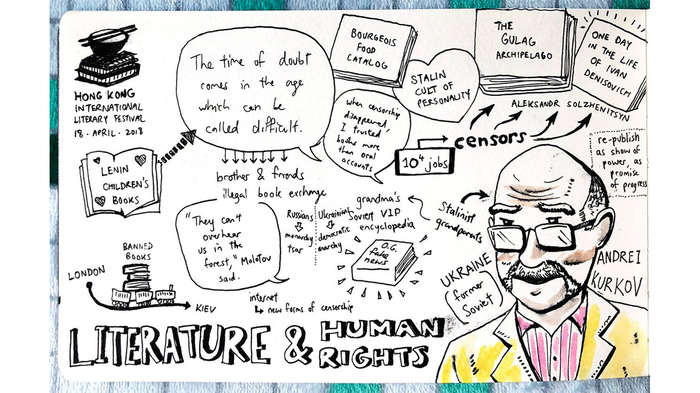 HONG KONG
INTERNATIONAL
LITERARY FESTIVAL
18 . APRIL . 2018
The time of doubt
comes in the age
which can be
called difficult.
BOURGEOIS
FOOD
CATALOG
STALIN
CULT OF
PERSONALITY
THE
GULAG
ARCHIPELAGO
ONE DAY
IN THE LIFE
OF IVAN
DENISOVICH
ALEKSANDR SOLZHENITSYN
when censorship
disappeared,
I trusted
books more
than oral
accounts
censors
10⁴ jobs
re-publish
as show of
power, as
promise
of progress
LENIN
CHILDREN'S
BOOKS
brother & friends
illegal book exchange
"They can't
overhear
us in the
forest," Molotov
said.
Russians
monarchy
tsar
Ukrainians
democratic
anarchy
grandma's
Soviet VIP
encyclopedia
O.G.
fake
news
Stalinist
grandparents
BANNED
BOOKS
LONDON
KIEV
internet
new forms of censorship
UKRAINE
(former
Soviet)
ANDREI
KURKOV
LITERATURE & HUMAN
RIGHTS